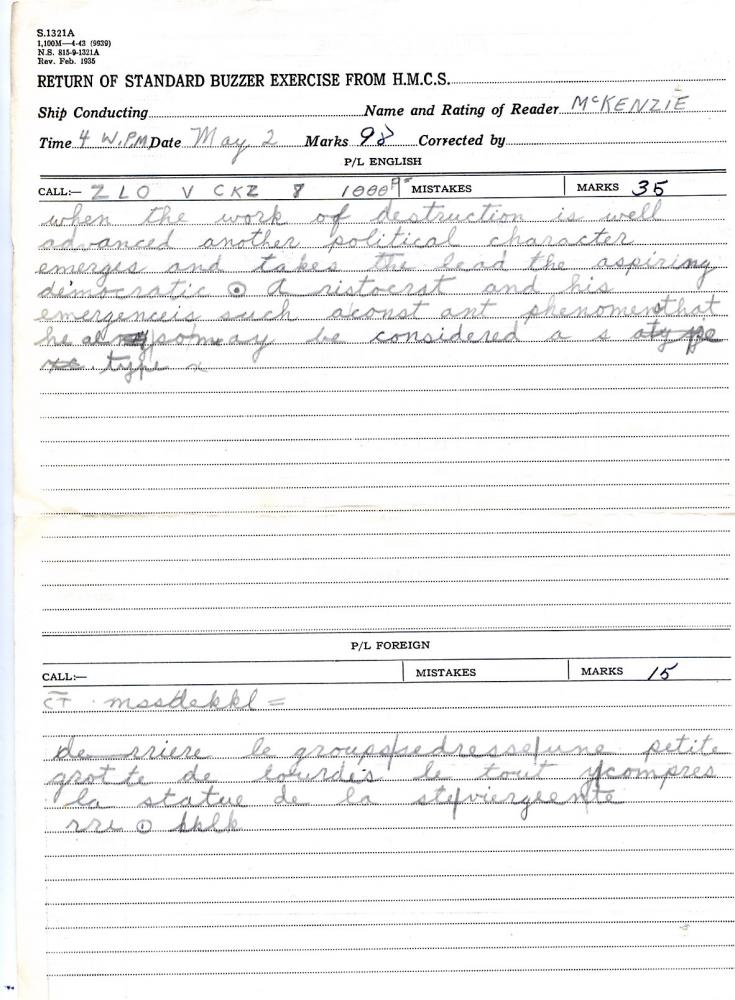 S.1321A
1,100M—4-43 (9639)
N.S. 815-9-1321A
Rev. Feb. 1935
RETURN OF STANDARD BUZZER EXERCISE FROM H.M.C.S.
Ship Conducting Name and Rating of Reader McKENZIE
Time 4 W.P.M Date May 2 Marks 98 Corrected by
P/L ENGLISH
CALL:— ZLO V CKZ 8 1000 MISTAKES MARKS 35
when the work of destruction is well
advanced another political character
emerges and takes the lead the aspiring
democratic ⊙ A ristocrat and his
emergenceis such aconst ant phenomenthat
he also may be considered a s atype
type x
P/L FOREIGN
CALL:— MISTAKES MARKS 15
CT mssdekkl =
de rriere le groups/sedresse/une petite
grotte de lourdes le tout y/compres
la statue de la ste/viergeente
rre ⊙ kklk